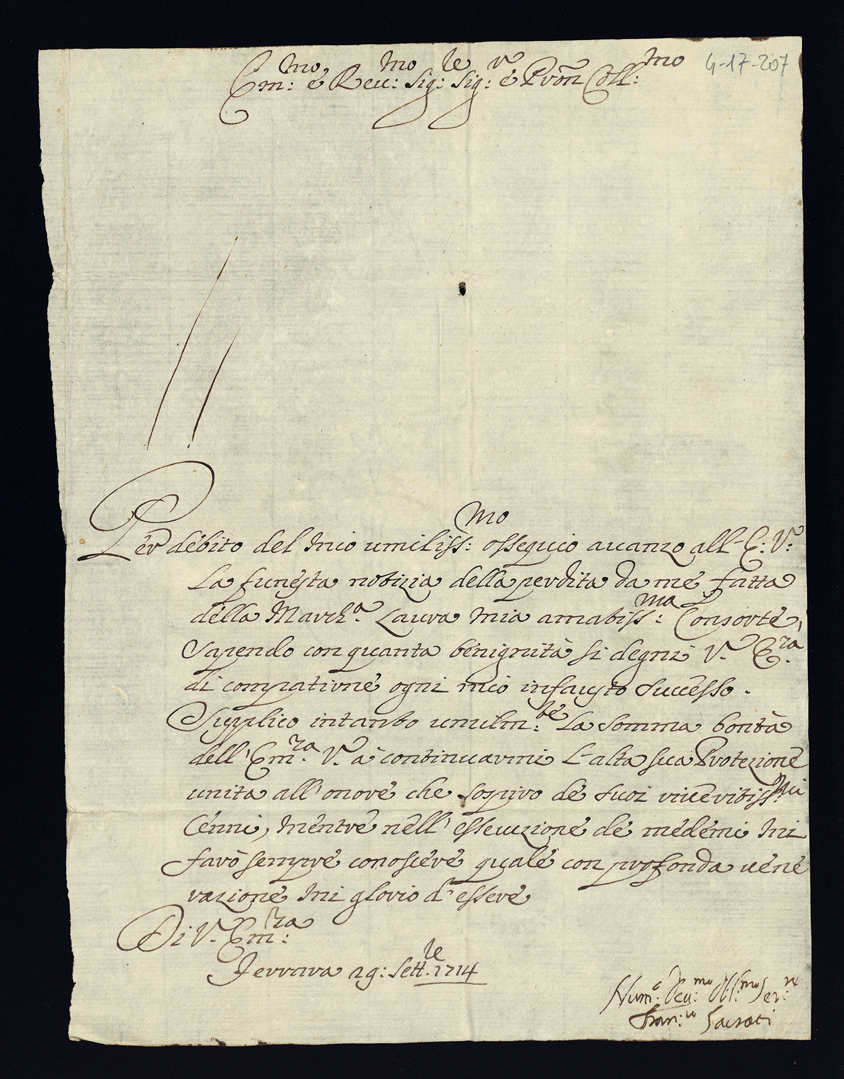 Em:mo é Reu:mo Sig:le Sig:r é Pron Coll:mo
4-17-207
Per debito del mio umiliss:mo ossequio auanzo all'E: V:
la funesta notizia della perdita da me fatta
della March:a Laura mia amabiss:ma Consorte,
sapendo con quanta benignità si degni V: E:za
di compatirne ogni mio infausto successo.
Supplico intanto umilm:te la somma bontà
dell'Em:za V: a continuarmi l'alta sua Protezione
unita all'onore che sospiro de suoi riueritiss:mi
cenni, mentre nell'essecuzione de medemi mi
farò sempre conoscere quale con profonda uene
razione mi glorio d'essere
Di V: Em:za
Ferrara 29: Sett:le 1714
Hum:o Deu:mo Obl:mo Ser:re
Fran:co Sacrati